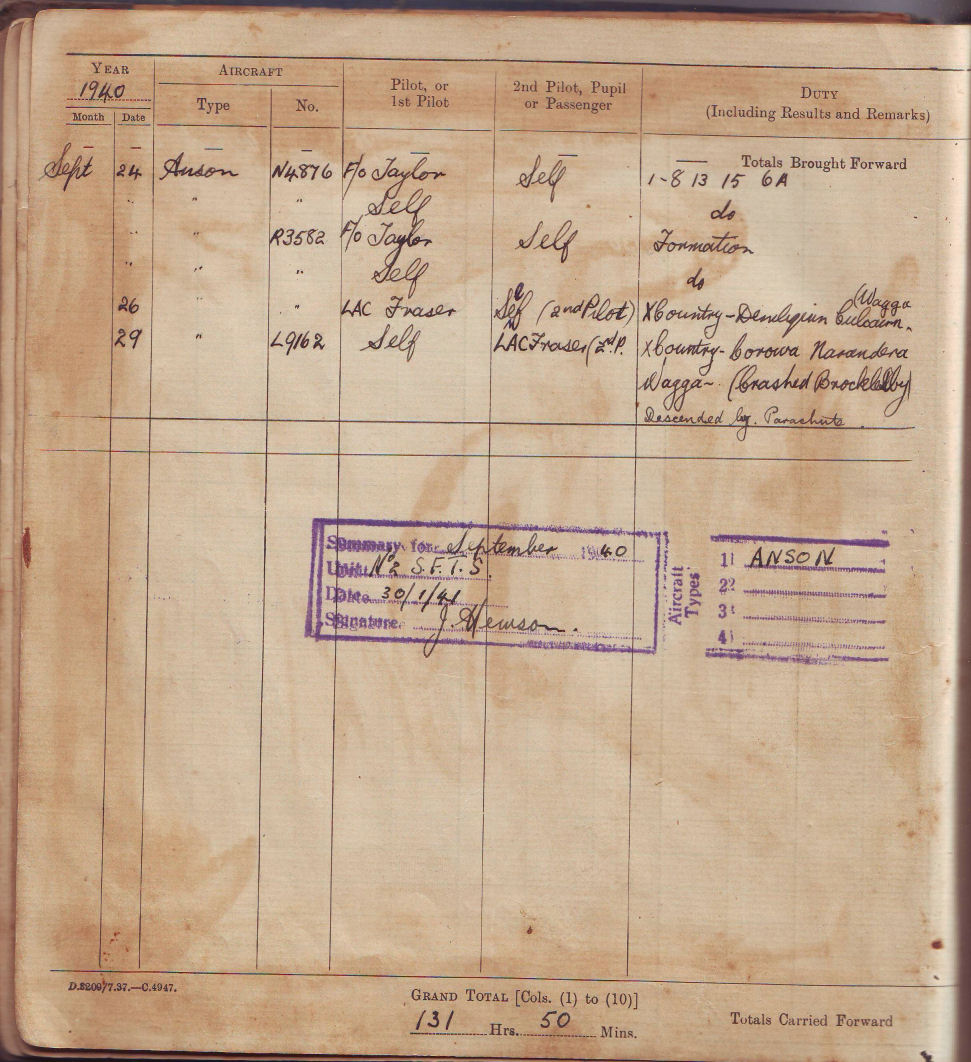 YEAR AIRCRAFT Pilot, or 1st Pilot 2nd Pilot, Pupil or Passenger DUTY
1940 Type No. (Including Results and Remarks)
Month Date
— — — — — — — Totals Brought Forward
Sept 24 Anson N4876 F/o Taylor Self 1-8 13 15 6A
" " " Self do
" " R3582 F/o Taylor Self Formation
" " " Self do
26 " " LAC Fraser Self (2nd Pilot) XCountry-Deniliquin Culcairn. (Wagga
29 " L9162 Self LAC Fraser (2nd P. XCountry-Corowa Narandera
Wagga- (Crashed Brocklesby)
Descended by Parachute.
Summary for September 1940
Unit No 2 S.F.T.S.
Date 30/1/41
Signature. J. Hewson.
Aircraft Types
1) ANSON
2)
3)
4)
D.8209/7.37.—C.4947.
GRAND TOTAL [Cols. (1) to (10)]
131 Hrs. 50 Mins. Totals Carried Forward